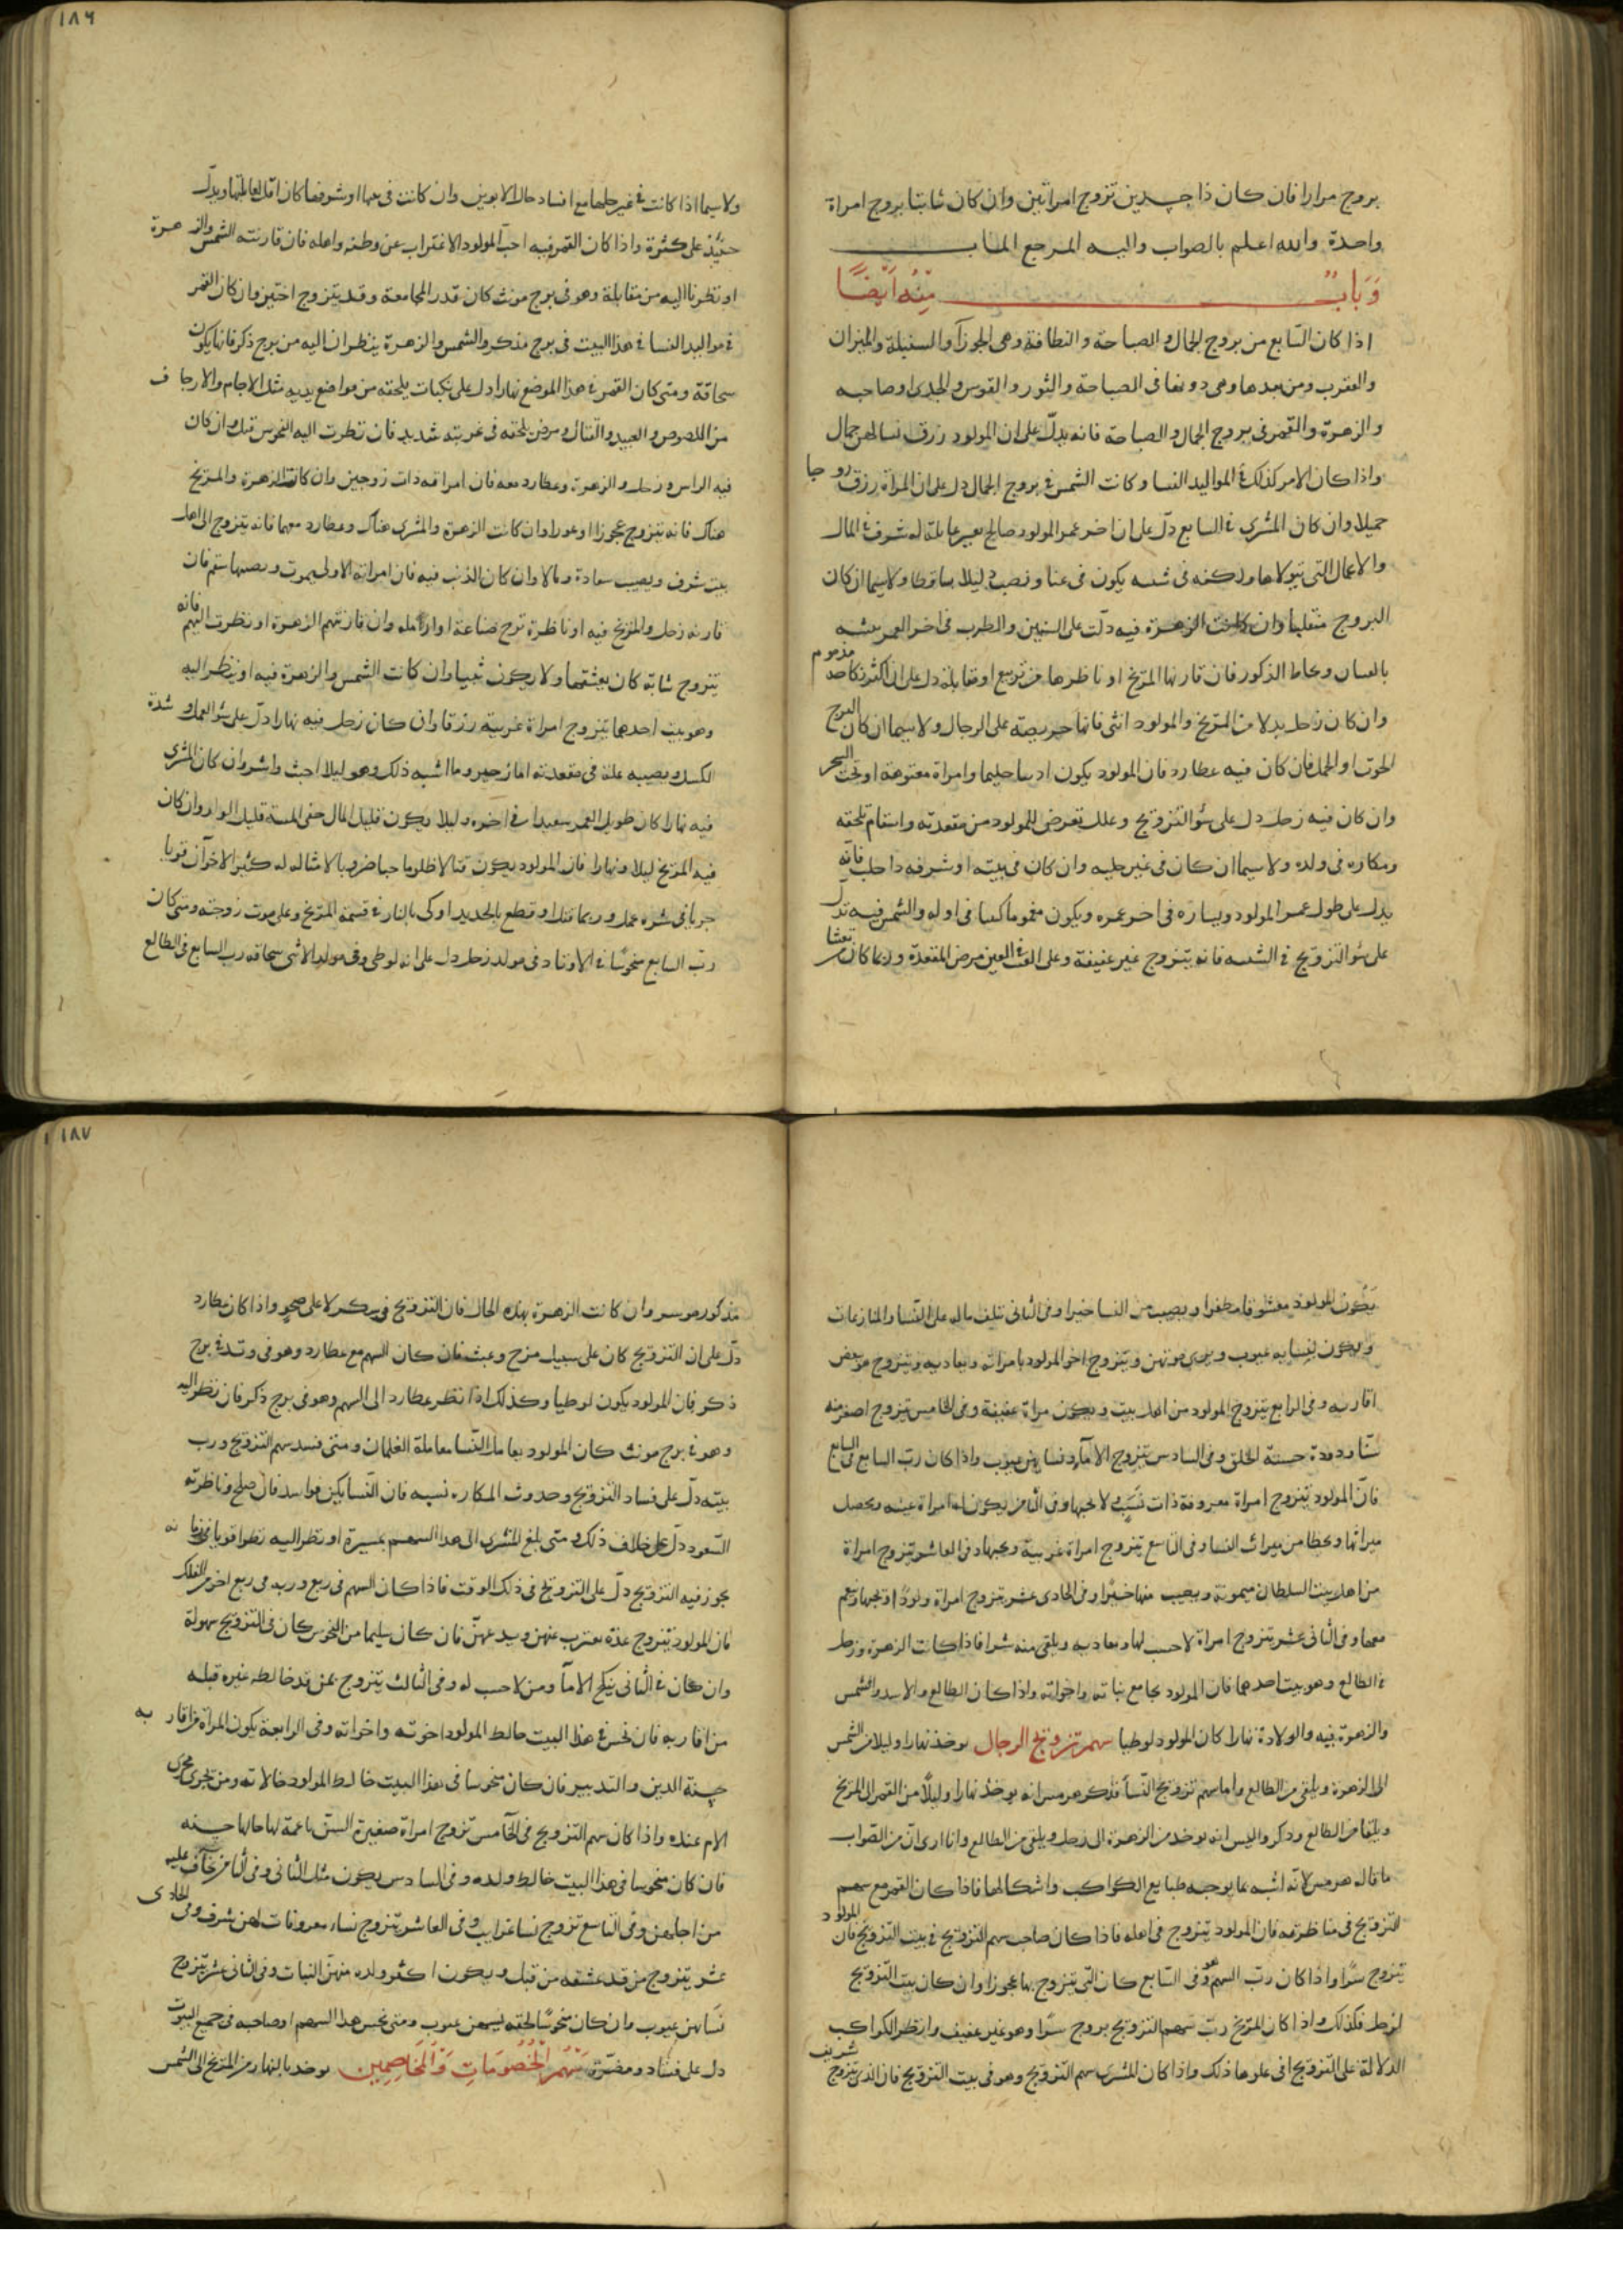 بروج مرارا فان كان ذا جسدين تزوج امراتين وان كان ثابتا بروج امراة
واحدة والله اعلم بالصواب واليه المرجع الماب
وَبَابٌ مِنْهُ اَيْضًا
اذا كان السّابع من بروج الجمال والصباحة والنظافة وهى الجوزآ والسنبلة والميزان
والعقرب ومن بعدها وهى دونها فى الصباحة والثور والقوس والجدى اوصاحبه
والزهرة والقمر فى بروج الجمال والصباحة فانه يدلّ على ان المولود رزق نسا لهن جمال
واذا كان الامر كذلك فى المواليد النسا وكانت الشمس فى بروج الجمال دل على ان المراة رزق زوجا
جميلا وان كان المشترى فى السابع دلّ على ان اخر عمر المولود صالح له شرف فى المال
والاعمال التى يتولاها ولكنه فى يكون فى عنا ونصب ليلا ساقطا ولا سيما ان كان
البروج منقلبا وان كانت الزهرة فيه دلّت على والطرب فى اخر العمر
الذكور فان قارنها المريخ او ناظرها من تربيع او مقابلة دل على ان اكثر نكاحه مذموم
وان كان زحل بدلا من المريخ والمولود انثى فانها حريصة على الرجال ولا سيما ان كان البرج
الحوت او الحمل فان كان فيه عطارد فان المولود يكون اديبا حليما وامراة معتوهة او تحت البحر
وان كان فيه زحل دل على سُو التزويج وعلل تعرض للمولود من مقعدته واسقام تلحقه
ومكاره فى ولده ولا سيما ان كان فى غير حليه وان كان فى بيته او شرفه فانه
يدل على طول عمر المولود ويساره فى اخر عمره ويكون مغموما فى اوله والشمس فيه تدل
على سُو التزويج فى فانه يتزوج غير عفيفة وعلى مرض المقعدة وربما كان
١٨٦
ولا سيما اذا كانت فى غير حلبها مع افساد حال الابوين وان كانت فى بيتها او شرفها كان اقل لغايلتها ويدلّ
حينئذ على كثرة واذا كان القمر فيه احبّ المولود الاغتراب عن وطنه واهله فان قارنته الشمس والزهرة
او نظرنا اليه من مقابلة وهو فى برج مونث كان قدر المجامعة وقد يتزوج اختين وان كان القمر
فى مواليد النسا فى هذا البيت فى برج مذكر والشمس والزهرة ينظران اليه من برج ذكر فانها يكون
سحاقة ومتى كان القمر فى هذا الموضع نهارا دل على نكبات يلحقه من مواضع يديه مثل الاجام والارجاف
من اللصوص والعبيد والقتال ومرض يلحقه فى غربته شديد فان نظرت اليه النحوس قتل وان كان
فيه الراس وزحل والزهرة وعطارد معه فان امراته ذات زوجين وان كانت الزهرة والمريخ
هناك فانه يتزوج عجوزا او عورا وان كانت الزهرة والمشترى هناك وعطارد معهما فانه يتزوج الى اهل
بيت شرف ويصيب سعادة ومالا وان كان الذنب فيه فان امراته الاولى يموت ويصيبها سقم فان
قارنه زحل والمريخ فيه او ناظره تزوج صناعة او ارملة وان قارنتهم الزهرة او نظرت اليهم فانه
يتزوج شابة كان يعشقها ولا يكون ثيبا وان كانت الشمس والزهرة فيه او ينظر اليه
وهو بيت احدها يتزوج امراة غريبة رزقا وان كان زحل فيه نهارا دلّ على سُو العمل وشدة
الكسل ويصيبه علة فى مقعدته اما زحير وما اشبه ذلك وهو ليلا اخبث واشر وان كان المشترى
فيه نهارا كان طويل العمر سعيدا فى اخره وليلا يكون قليل المال قليل الولد وان كان
فيه المريخ ليلا ونهارا فان المولود يكون قتالا ظلوما كثير الاخوان قويا
فى شره عمل وربما قتل او قطع بالحديد او كى بالنار فى قسمة المريخ وعلى موت زوجته ومتى كان
ربّ السابع منحوسًا فى الاوتاد فى مولد زحل دل على انه لوطى وفى مولد الانثى سحاقه رب السابع فى الطالع
يَكُون المولود معشوقا مظفرا ويصيب من النسا خيرا وفى الثانى تلف ماله على النّسا والمنازعات
ويكون لنسايه عيوب ويرى موتهن ويتزوج اخو المولود بامراته ويعاديه ويتزوج هو بعض
اقاربه وفى الرابع يتزوج المولود من اهل بيت ويكون مراة عفيفة وفى الخامس يتزوج اصغر منه
سنّا حسنة الخلق وفى السادس يتزوج الامآء ونسا لهن عيوب واذا كان ربّ السابع فى السابع
فانّ المولود يتزوج امراة معروفة ذات نَسَب ولا يحبها وفى الثامن يكون له امراة غنيه ويحصل
ميراثها ويحظا من ميراث النسا وفى التاسع يتزوج امراة غريبة ويحبها وفى العاشر يتزوج امراة
من اهل بيت السلطان ميمونة ويصيب منها خيرًا وفى الحادى عشر يتزوج امراة ولودًا ويحبها وينعم
معها وفى الثانى عشر يتزوج امراة لا حسب لها ويعاديه ويلقى منه شرا فاذا كانت الزهرة وزحل
فى الطالع وهو بيت احدهما فان المولود يجامع بناته واخواته واذا كان الطالع والاسد والشمس
والزهرة فيه والولادة نهارا كان المولود لوطيا سهم تزويج الرجال يوخذ نهارا وليلا من الشمس
الى الزهرة ويلقى من الطالع واما سهم تزويج النّسآ فذكر هرمس انه يوخذ نهارا وليلاً من القمر الى المريخ
ويلقا من الطالع وذكر واليس انه يوخذ من الزهرة الى زحل ويلقى من الطالع وانا ارى انّ من الصّواب
ما قاله هرمس لانّه اشبه بما يوجبه طبايع الكواكب واشكالها فاذا كان القمر مع سهم
التزويج فى مناظرته فان المولود يتزوج فى اهله فاذا كان صاحب سهم التزويج فى بيت التزويج فان المولود
يتزوج سرًا واذا كان ربّ السهم هو فى السّابع كان التى يتزوج بها عجوزا وان كان بيت التزويج
لزحل فكذلك واذا كان المريخ ربّ سهم التزويج يزوج سرًا وهو غير عفيف وانظر الكواكب
الدلالة على التزويج ذلك واذا كان المشترى سهم التزويج وهو فى بيت التزويج فان الذى يتزوج شريف
١٨٧
مذكور موسر وان كانت الزهرة بهذه الحال فان التزويج فى سكر لا على صحو واذا كان عطارد
دلّ على ان التزويج كان على سبيل مزح وعبث فان كان السهم مع عطارد وهو فى وتد فى برج
ذكر فان المولود يكون لوطيا وكذلك اذا نظر عطارد الى السهم وهو فى برج ذكر فان نظر اليه
وهو فى برج مونث كان المولود يعامل النّسا معاملة الغلمان ومتى فسد سهم التزويج ورب
بيته دلّ على فساد التزويج وحدوث المكاره نسبه فان النّسا يكنّ فواسد فان صلح وناظرته
السّعود دلّ على خلاف ذلك ومتى بلغ المشترى الى هذا السهم بمسيرة او نظر اليه نظرا قويا فى زمانه
يجوز فيه التزويج دلّ على التزويج فى ذلك الوقت فاذا كان السهم فى ربع وربه فى ربع اخر من الفلك
فان المولود يتزوج عدّة عنهن فان كان سليما من النحوس كان فى التزويج سهولة
وان كان فى الثانى ينكح الامآ ومن لا حسب له وفى الثالث يتزوج بمن قد خالطه غيره قبله
من اقاربه فان نحس فى هذا البيت خالط المولود اخوته واخواته وفى الرابعة يكون المراة من اقاربه
حسنة الدين والتدبير فان كان منحوسا فى هذا البيت خالط المولود خالاته ومن يجرى مجرى
الام عنده واذا كان سهم التزويج فى الخآمس تزوج امراة صغيرة السنّ ناعمة لها حالها حسنه
فان كان منحوسا فى هذا البيت خالط ولده وفى السادس يكون مثل الثانى وفى الثامن يخاف عليه
من اجلهن وفى التاسع تزوج نسا غرايب وفى العاشر يتزوج نساء معروفات لهن شرف وفى الحادى
عشر يتزوج من قد عشقه من قبل ويكون اكثر ولده منهنّ البنات وفى الثانى عشر يتزوج
نسَا لهن عيوب وان كان منحوسًا لحقه عيوب ومتى نحس هذا السهم او صاحبه فى جميع البيوت
دل على فساد ومضرّة سَهْمُ الْخُصُومَاتِ وَالْمخَاصِمِين يوخذ بالنهار من المريخ الى الشمس